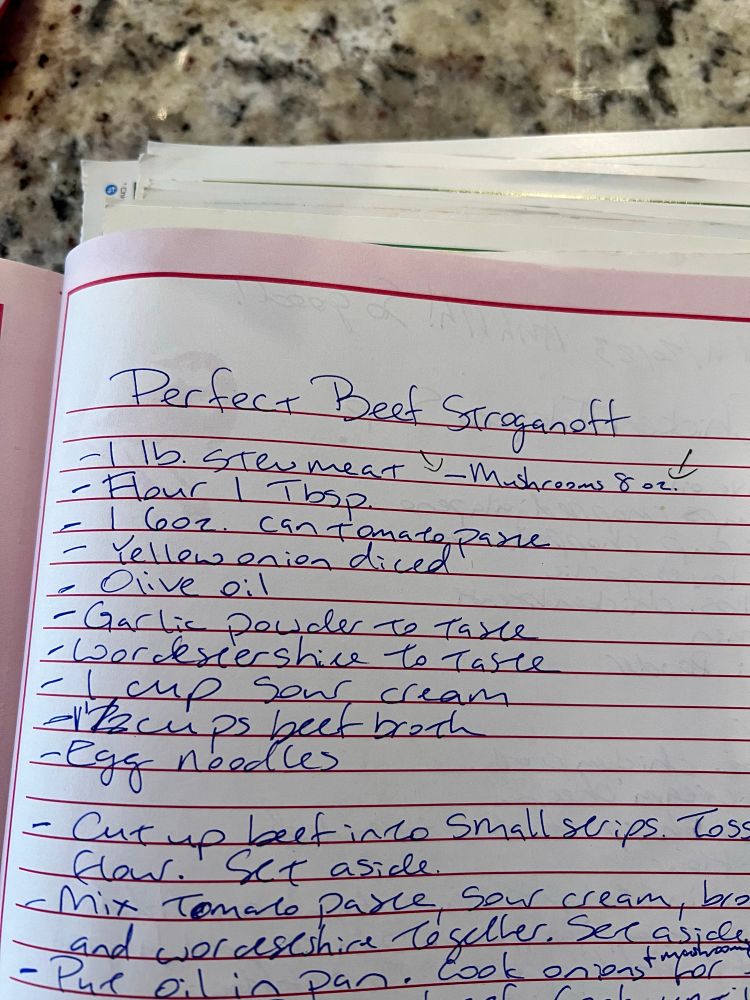 Perfect Beef Stroganoff
- 1 lb. stew meat - Mushrooms 8 oz.
- Flour 1 Tbsp.
- 1 6oz. can tomato paste
- Yellow onion diced
- Olive oil
- Garlic powder to taste
- Wordestershire to taste
- 1 cup sour cream
- 1 1/2 cups beef broth
- Egg noodles
- Cut up beef into small strips. Toss
flour. Set aside.
- Mix Tomato paste, sour cream, bro
and wordesteshire together. Set aside.
- Put oil in pan. Cook onions + mushrooms for